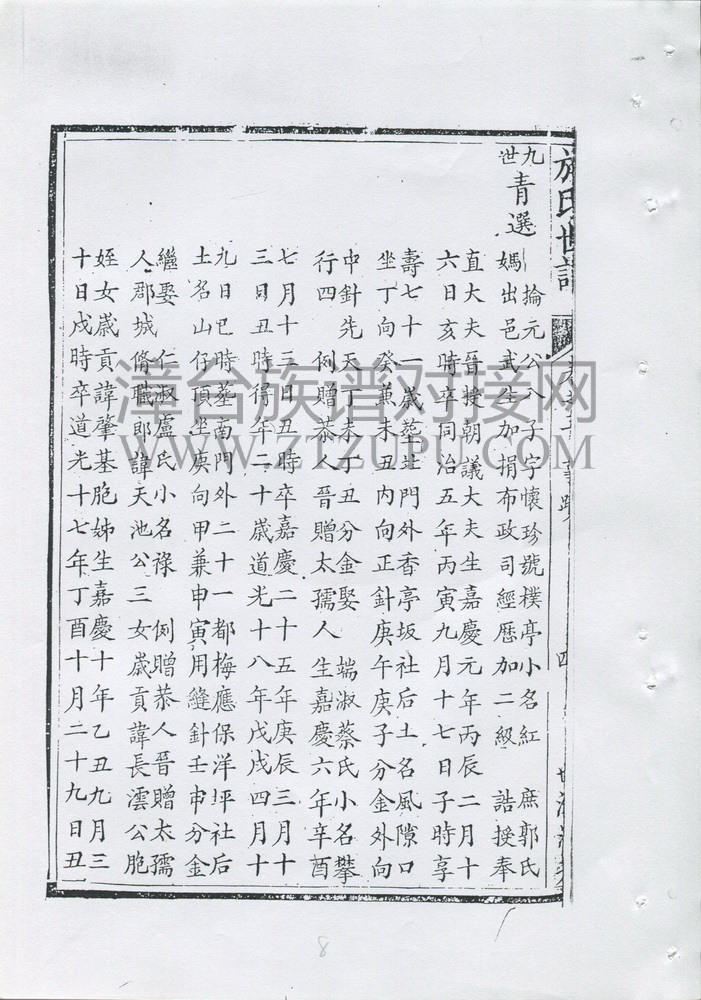 施氏世譜
四
九世
青選
掄元公八子字懷珍號樸亭小名紅 庶郭氏
媽出邑武生加捐布政司經歷加二級 誥授奉
直大夫晉授朝議大夫生嘉慶元年丙辰二月十
六日亥時卒同治五年丙寅九月十七日子時享
壽七十一歲葬北門外香亭坂社后土名風隙口
坐丁向癸兼未丑內向正針庚午庚子分金外向
中針先天丁未丁丑分金娶 端淑蔡氏小名攀
行四 例贈恭人晉贈太孺人生嘉慶六年辛酉
七月十三日丑時卒嘉慶二十五年庚辰三月十
三日丑時得年二十歲道光十八年戊戌四月十
九日巳時墓南門外二十一都梅應保洋坪社后
土名山仔頂坐庚向甲兼申寅用縫針壬申分金
繼娶 仁淑盧氏小名祿 例贈恭人晉贈太孺
人郡城脩職郎諱天池公三女歲貢諱長澐公胞
姪女歲貢諱肇基胞姊生嘉慶十年乙丑九月三
十日戌時卒道光十七年丁酉十月二十九日丑
漳台族谱对接网
WWW.ZTZUPU.COM
8